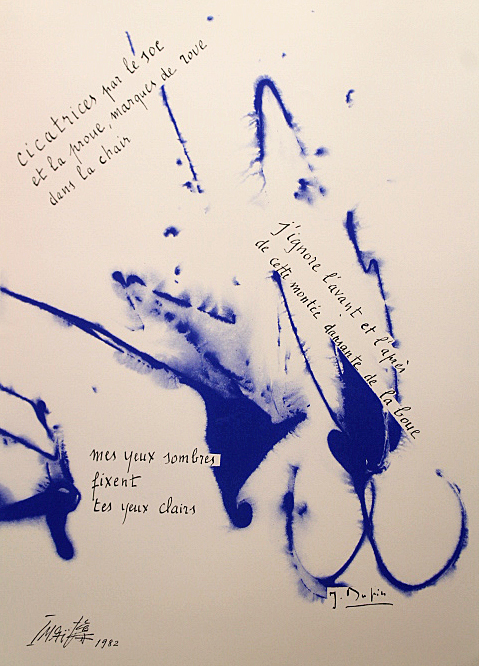 cicatrices par le soc
et la proue, marques de roue
dans la chair
j'ignore l'avant et l'après
de cette montée dansante de la boue
mes yeux sombres
fixent
tes yeux clairs
J. Dupin
1982